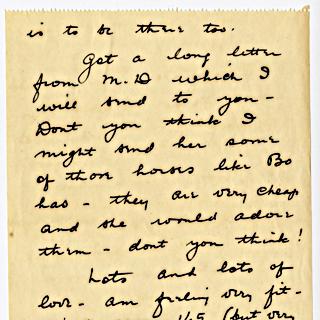 is to be there too.
Got a long letter
from M.D which I
will send to you -
Dont you think I
might send her some
of those horses like Bo
has - they are very cheap
and she would adore
them - dont you think!
Lots and lots of
love - am feeling very fit -
145 (but very